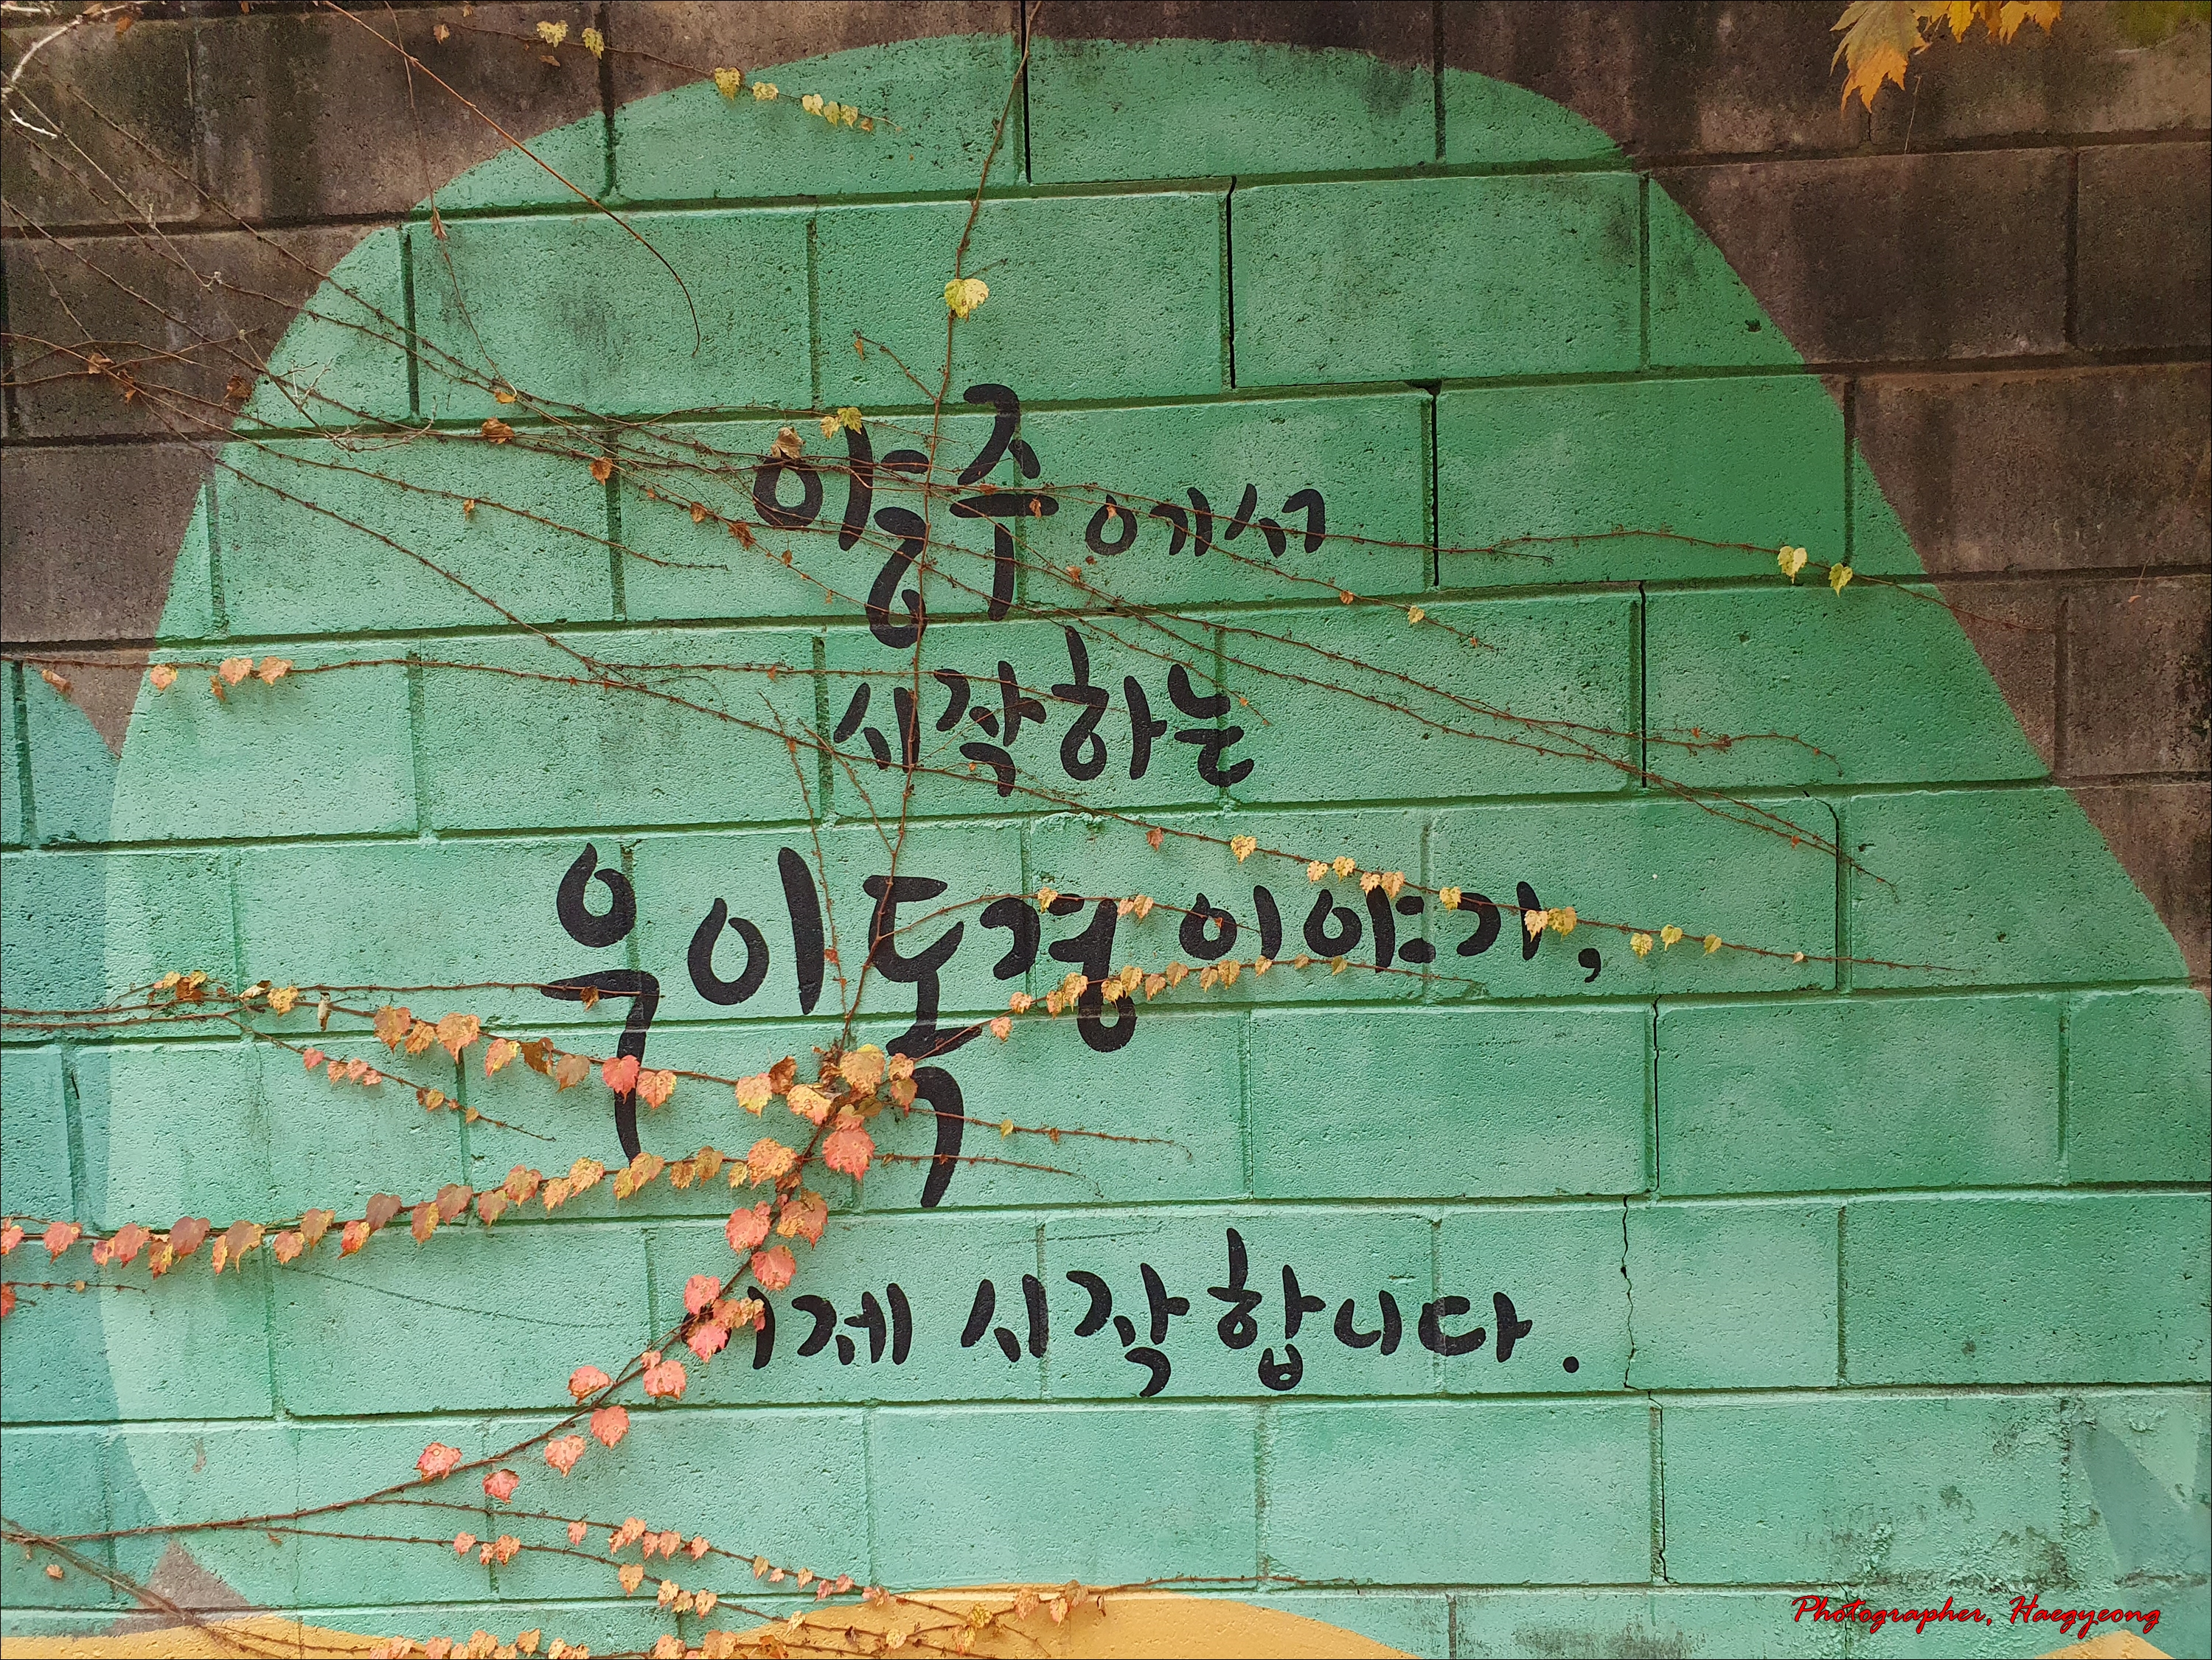 양주에서
시작하는
우이독경 이야기,
이제 시작합니다.
Photographer, Haegyeong